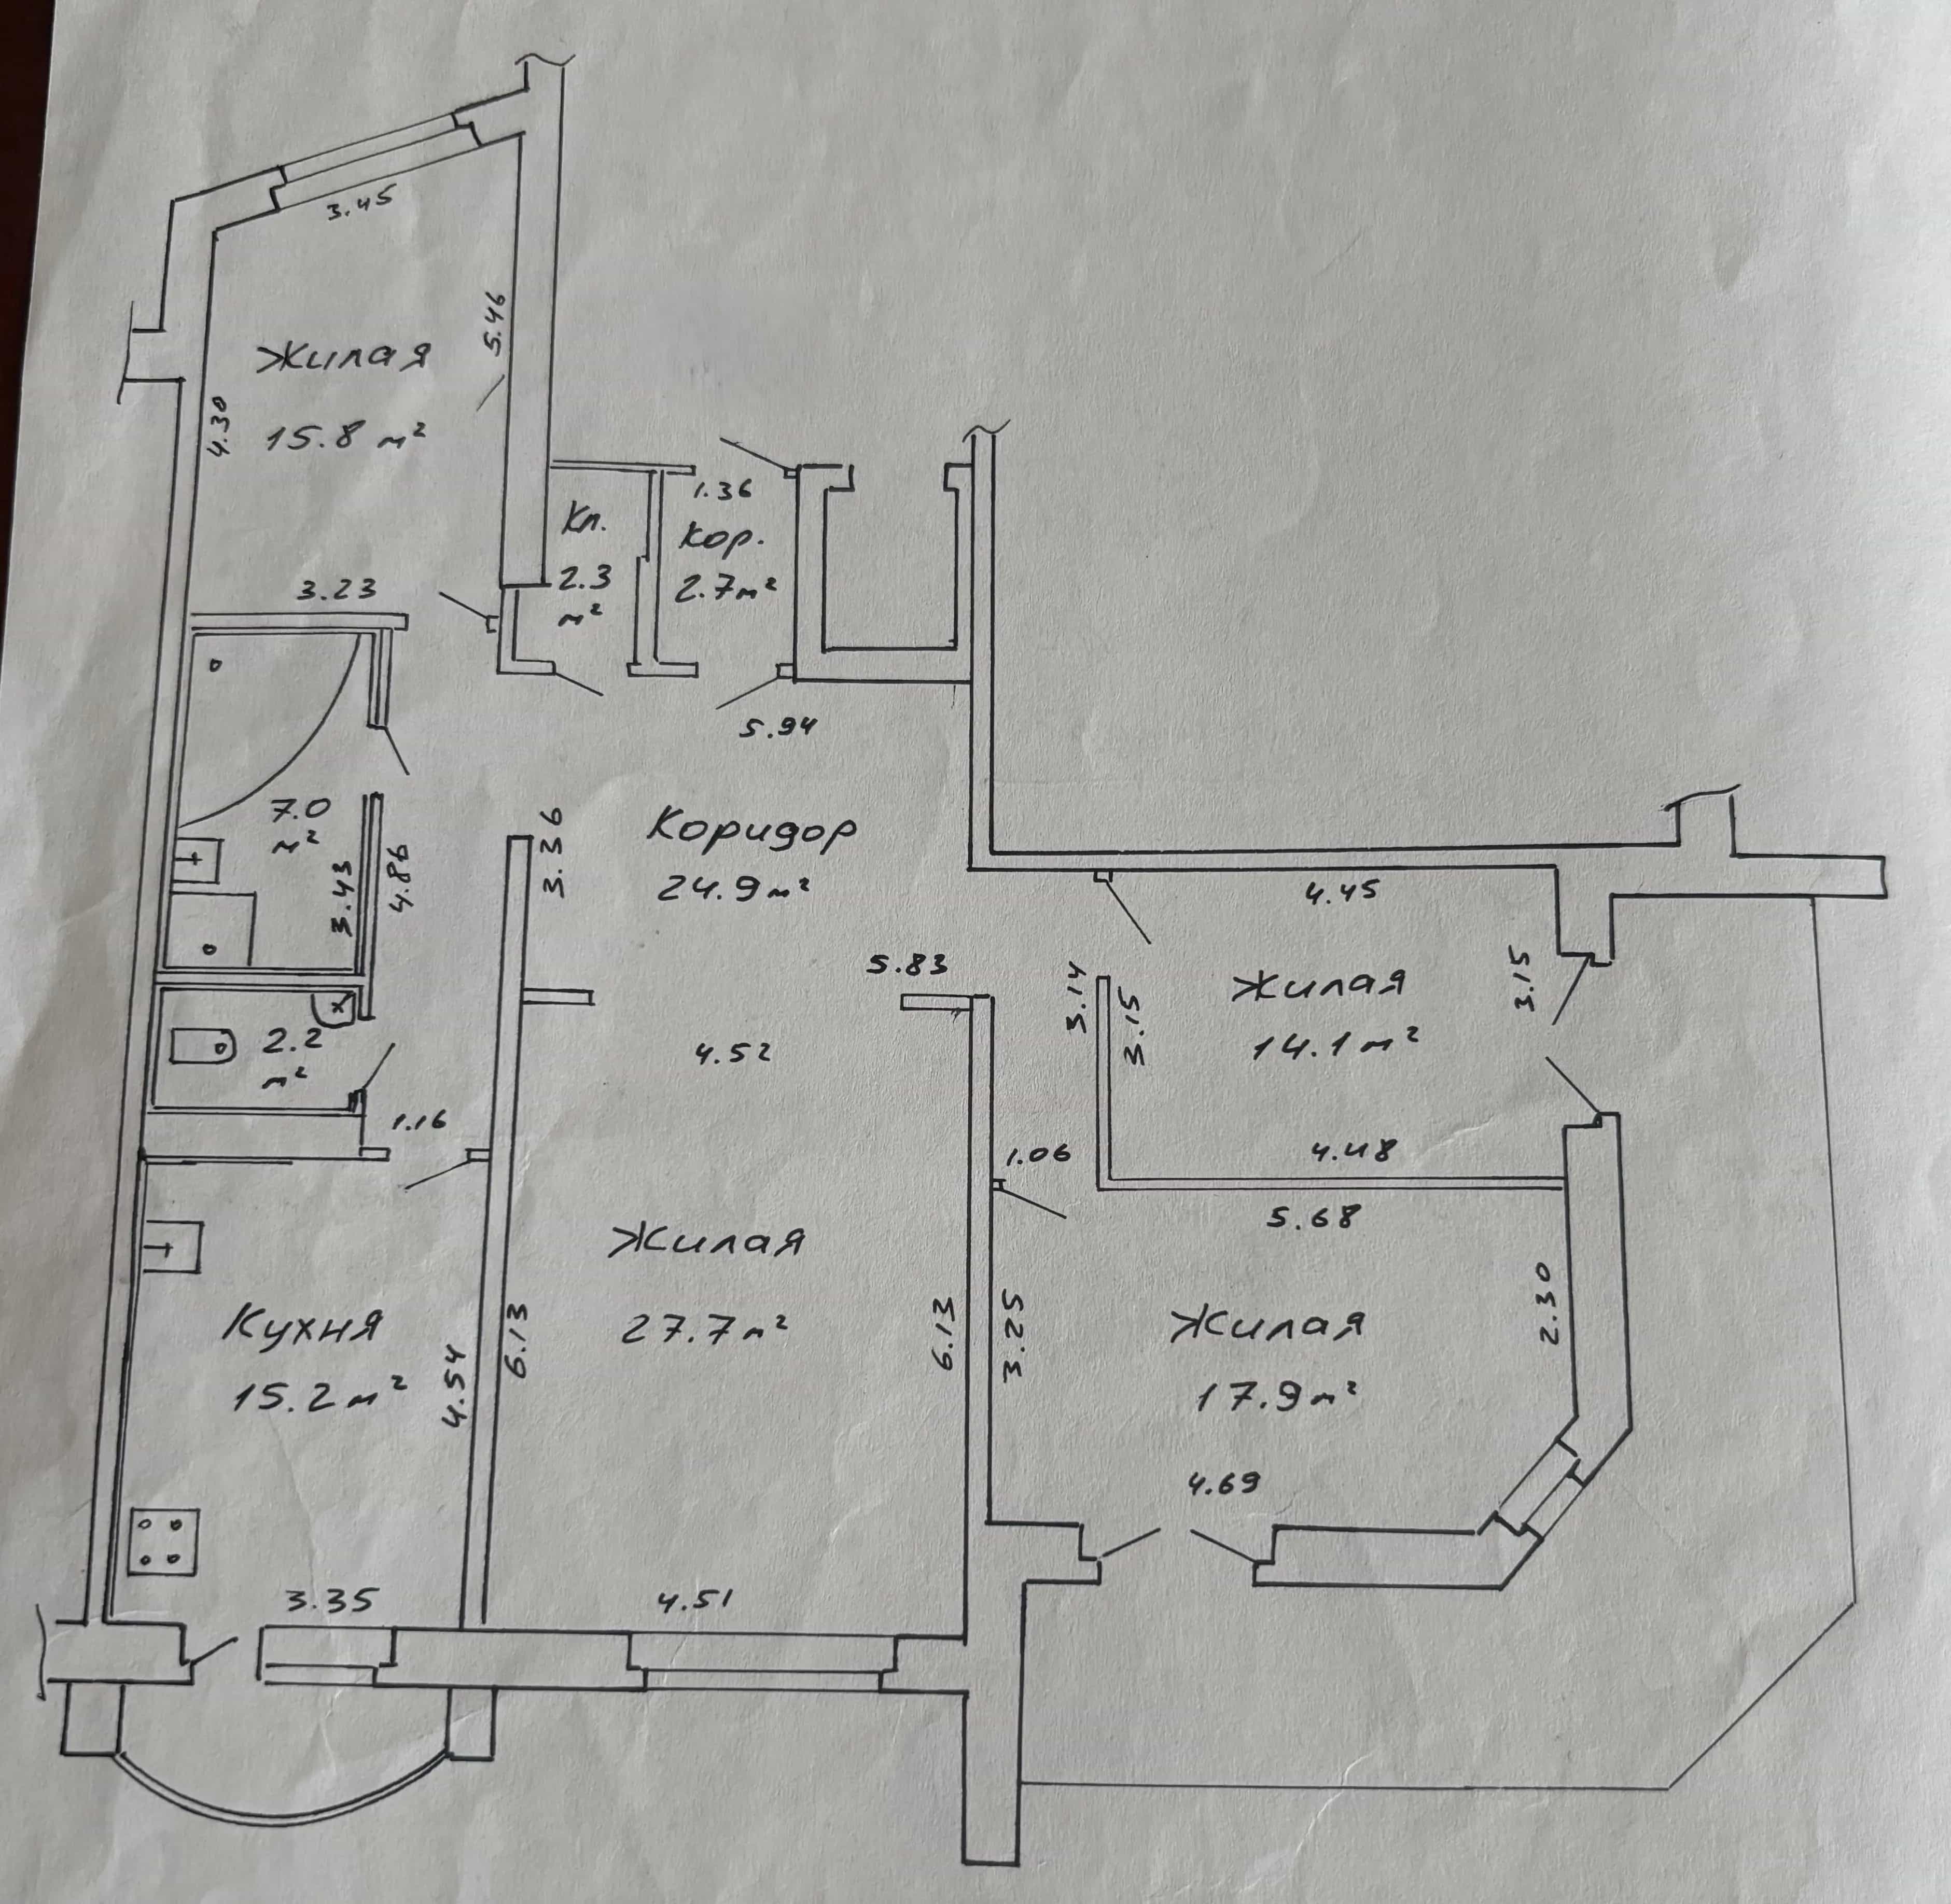 3.45
5.46
Жилая
4.30
15.8 м²
3.23
Кл.
2.3
м²
1.36
Кор.
2.7м²
5.94
7.0
м²
3.43
4.86
3.36
Коридор
24.9м²
4.45
5.83
3.14
3.15
Жилая
14.1м²
3.15
2.2
м²
4.52
1.16
1.06
4.48
5.68
Жилая
27.7м²
6.13
6.13
Кухня
15.2м²
4.54
3.25
Жилая
17.9м²
2.30
4.69
3.35
4.51